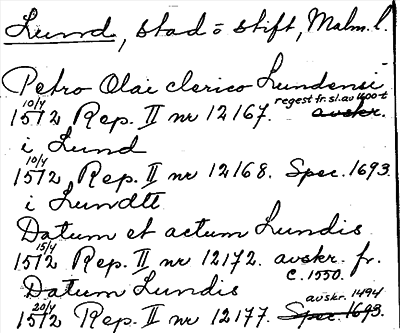 Lund, stad o stift, Malm. l.
Petro Olai clerico Lundensi
10/4 regest fr. sl. av 1600-t
1512 Rep. II nr 12167. avskr.
i Lund
10/4
1512 Rep. II nr 12168. Spec. 1693
i Lundtt
Datum et actum Lundis
15/4
1512 Rep. II nr 12172. avskr. fr.
c. 1550.
Datum Lundis
20/4 avskr. 1494
1512 Rep. II nr 12177. Spec. 1693.